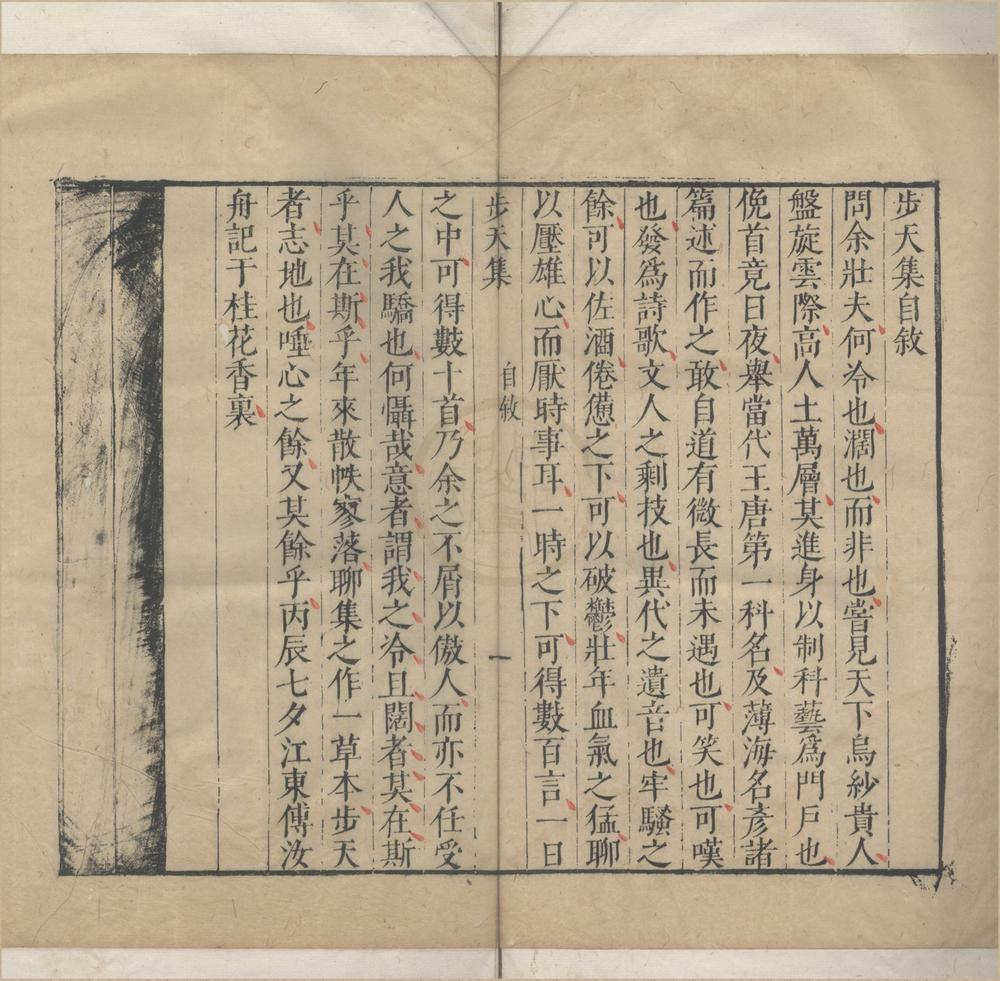 步天集自敘
問余壯夫何冷也濶也而非也嘗見天下烏紗貴人
盤旋雲際高人土萬層莫進身以制科藝爲門戶也
俛首竟日夜舉當代王唐第一科名及薄海名彥諸
篇述而作之敢自道有微長而未遇也可笑也可嘆
也發爲詩歌文人之剩技也異代之遺音也牢騷之
餘可以佐酒倦憊之下可以破鬱壯年血氣之猛聊
以壓雄心而厭時事耳一時之下可得數百言一日
步天集 自敘 一
之中可得數十首乃余之不屑以傲人而亦不任受
人之我驕也何懾哉意者謂我之冷且闊者其在斯
乎其在斯乎年來散帙寥落聊集之作一草本步天
者志地也唾心之餘又其餘乎丙辰七夕江東傅汝
舟記于桂花香裏